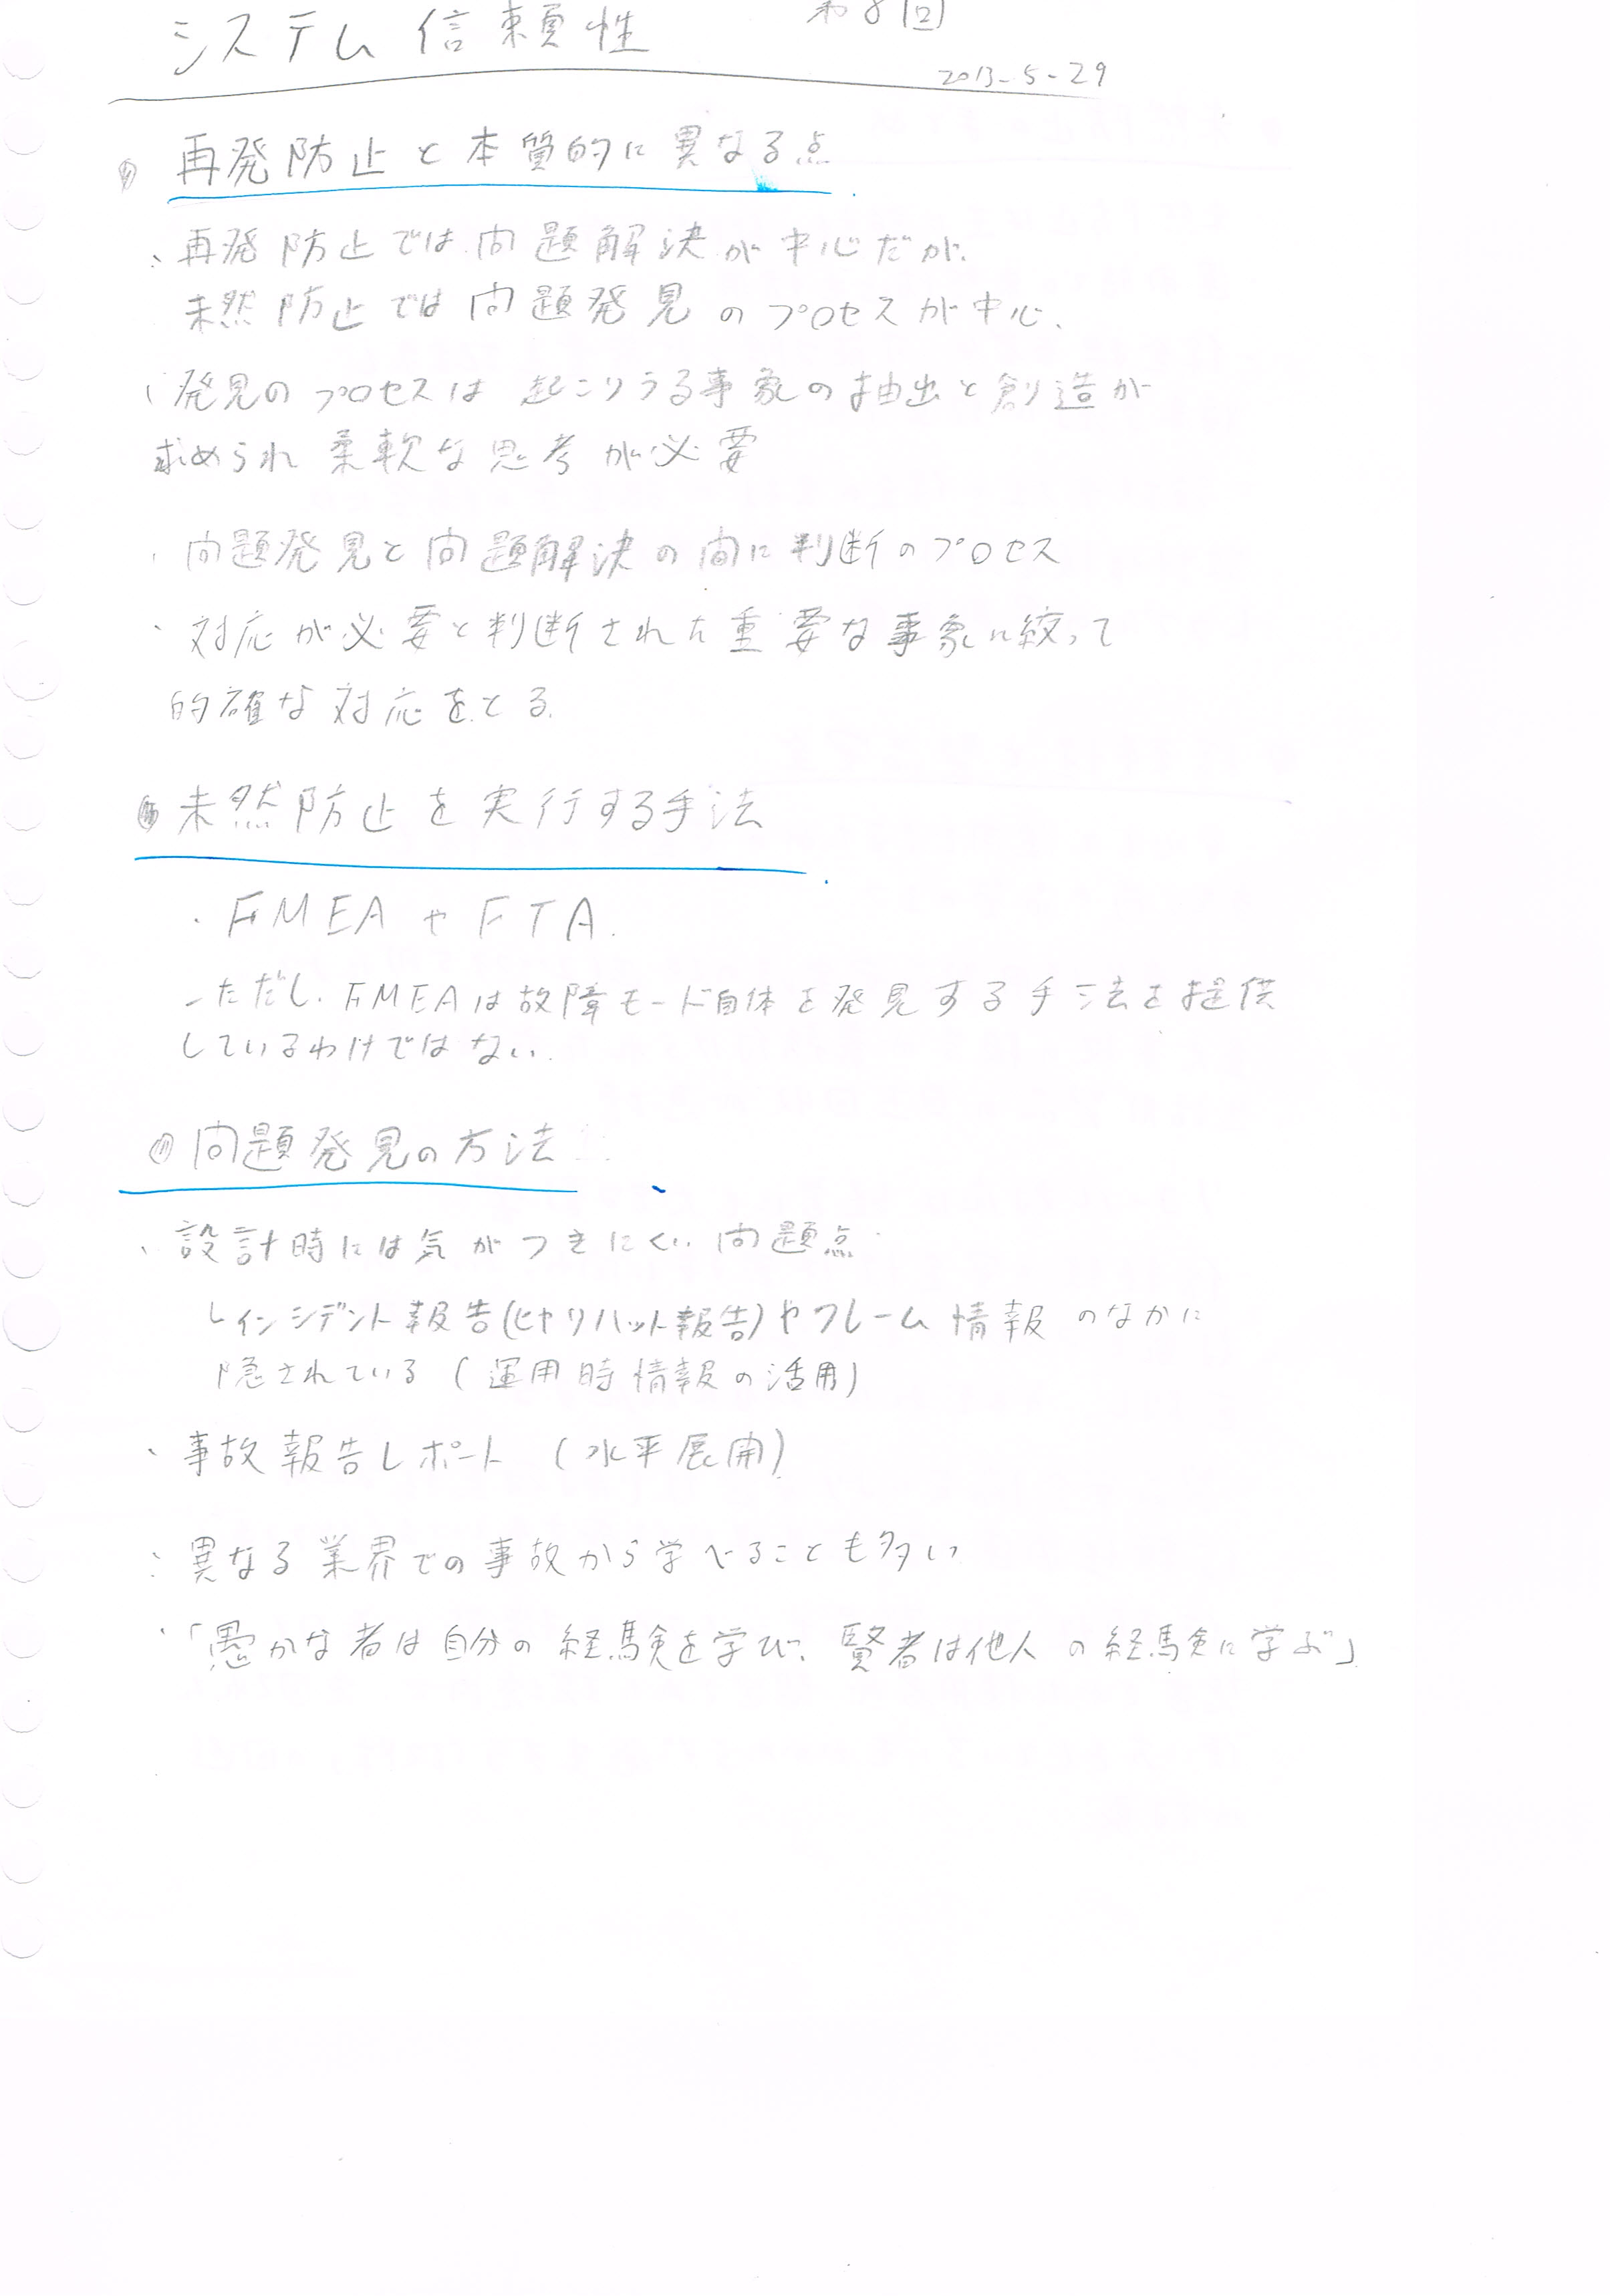 システム信頼性 第8回
2013-5-29
再発防止と本質的に異なる点
・再発防止では問題解決が中心だが、
未然防止では問題発見のプロセスが中心、
・発見のプロセスは起こりうる事象の抽出と創造が
求められ柔軟な思考が必要
・問題発見と問題解決の間に判断のプロセス
・対応が必要と判断された重要な事象に絞って
的確な対応をとる.
未然防止を実行する手法
・FMEAやFTA.
-ただし、FMEAは故障モード自体を発見する手法を提供
しているわけではない.
問題発見の方法
・設計時には気がつきにくい問題点
レインシデント報告(ヒヤリハット報告)やクレーム情報のなかに
隠されている(運用時情報の活用)
・事故報告レポート (水平展開)
・異なる業界での事故から学べることも多い
・「愚かな者は自分の経験を学び、賢者は他人の経験に学ぶ」